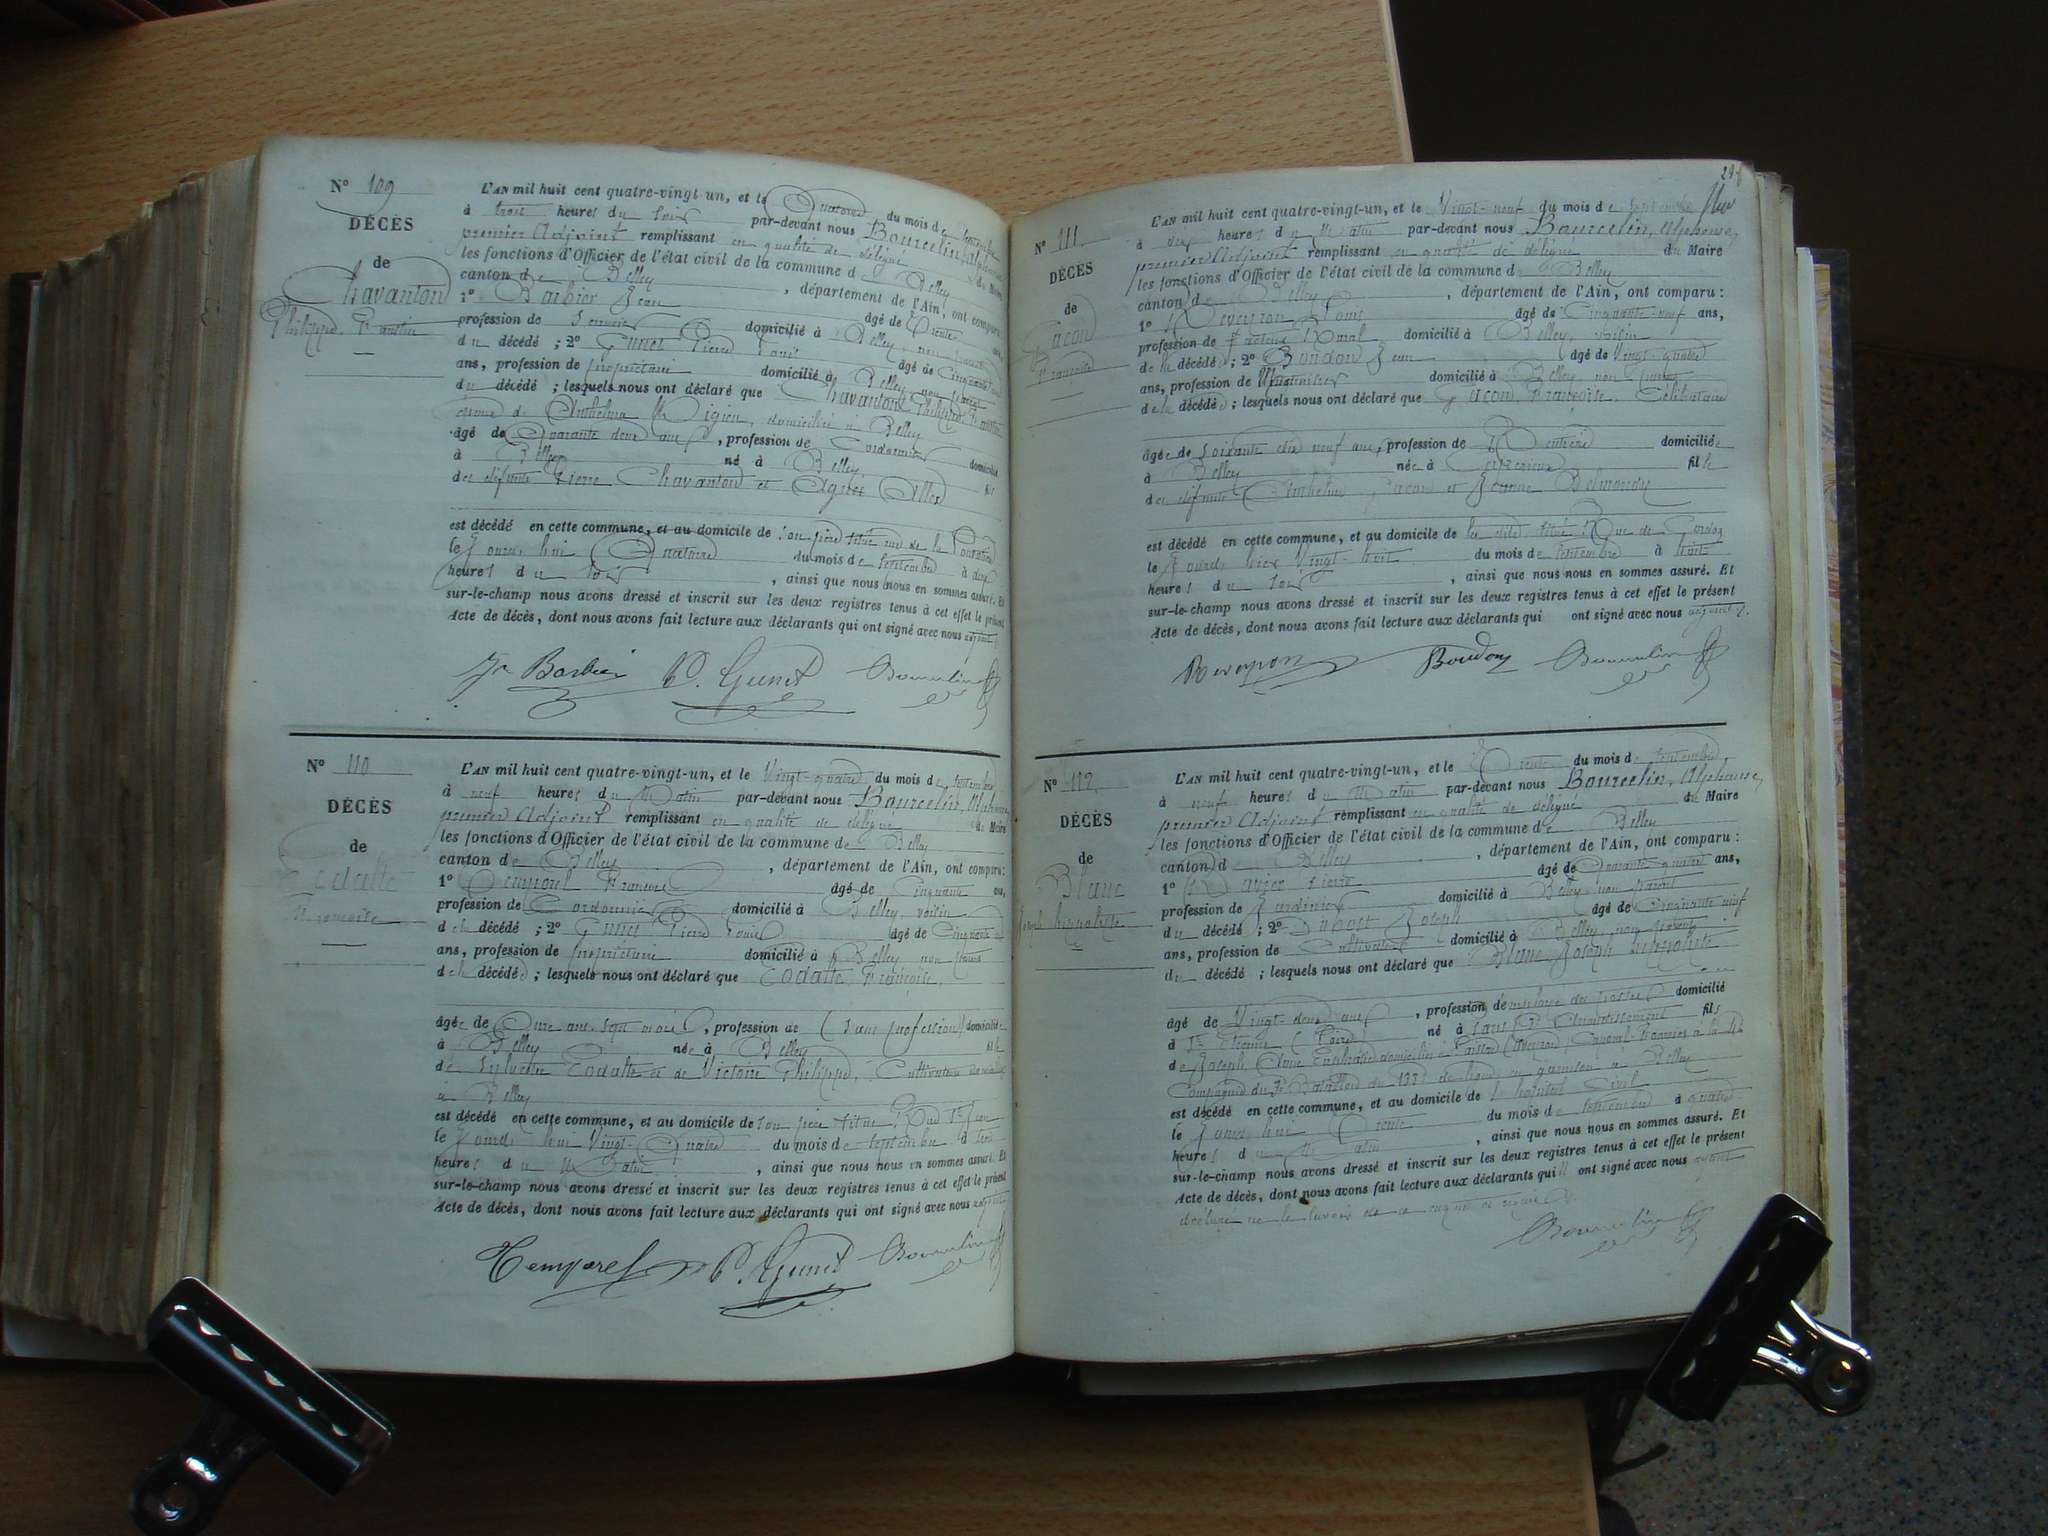 N° 109
DÉCÈS
de
Chavanton
Philippe Faustin
L'AN mil huit cent quatre-vingt-un, et le Quatorze du mois de septembre
à trois heures du soir par-devant nous Bourcelin, Alphonse,
premier Adjoint remplissant en qualité de délégué du Maire
les fonctions d'Officier de l'état civil de la commune de Belley
canton de Belley , département de l'Ain, ont comparu :
1° Barbier Jean âgé de trente
profession de domicilié à Belley, non parent
du décédé ; 2° Gunet Pierre Louis âgé de Cinquante
ans, profession de propriétaire domicilié à Belley non parent
du décédé ; lesquels nous ont déclaré que Chavanton Philippe Faustin
époux de Anthelma domiciliée à Belley
âgé de Quarante deux ans , profession de Cordonnier domicilié
à Belley né à Belley fils
des défunts Pierre Chavanton et Agnès
est décédé en cette commune, et au domicile de son père situé rue de la
le Jourd'hui Quatorze du mois de septembre à deux
heures du soir , ainsi que nous nous en sommes assuré. Et
sur-le-champ nous avons dressé et inscrit sur les deux registres tenus à cet effet le présent
Acte de décès, dont nous avons fait lecture aux déclarants qui ont signé avec nous adjoint
Jn Barbier P. Gunet Bourcelin
N° 110
DÉCÈS
de
Codalte
Françoise
L'AN mil huit cent quatre-vingt-un, et le Vingt-quatre du mois de septembre
à neuf heures du Matin par-devant nous Bourcelin, Alphonse,
premier Adjoint remplissant en qualité de délégué du Maire
les fonctions d'Officier de l'état civil de la commune de Belley
canton de Belley , département de l'Ain, ont comparu :
1° François âgé de Cinquante ans,
profession de Cordonnier domicilié à Belley, voisin
de la décédé ; 2° Gunet Pierre Louis âgé de Cinquante
ans, profession de propriétaire domicilié à Belley non parent
de la décédée ; lesquels nous ont déclaré que Codalte Françoise,
âgée de Onze ans sept mois , profession de (sans profession) domiciliée
à Belley née à Belley fille
de Sylvestre Codalte et de Victoire Philippe, Cultivateurs
à Belley
est décédé en cette commune, et au domicile de son père situé Rue St Jean
le Jourd'hui Vingt-Quatre du mois de septembre à
heures du Matin , ainsi que nous nous en sommes assuré. Et
sur-le-champ nous avons dressé et inscrit sur les deux registres tenus à cet effet le présent
Acte de décès, dont nous avons fait lecture aux déclarants qui ont signé avec nous adjoint
P. Gunet Bourcelin
N° 111
DÉCÈS
de
Gacon
Françoise
L'AN mil huit cent quatre-vingt-un, et le Vingt-neuf du mois de septembre
à heures du Matin par-devant nous Bourcelin, Alphonse,
premier Adjoint remplissant en qualité de délégué du Maire
les fonctions d'Officier de l'état civil de la commune de Belley
canton de Belley , département de l'Ain, ont comparu :
1° Reveyron Louis âgé de Cinquante-neuf ans,
profession de facteur Rural domicilié à Belley, voisin
de la décédé ; 2° Boudon Jean âgé de Vingt-quatre
ans, profession de Menuisier domicilié à Belley non parent
de la décédée ; lesquels nous ont déclaré que Gacon, Françoise, Célibataire
âgée de soixante dix neuf ans, profession de Rentière domiciliée
à Belley née à Ceyzérieu fille
des défunts Anthelme Gacon et Jeanne
est décédé en cette commune, et au domicile de la dite située Rue de
le Jourd'hier Vingt-huit du mois de septembre à
heures du soir , ainsi que nous nous en sommes assuré. Et
sur-le-champ nous avons dressé et inscrit sur les deux registres tenus à cet effet le présent
Acte de décès, dont nous avons fait lecture aux déclarants qui ont signé avec nous adjoint.
Reveyron Boudon Bourcelin
N° 112
DÉCÈS
de
Blanc
Joseph hippolyte
L'AN mil huit cent quatre-vingt-un, et le Trente du mois de septembre
à neuf heures du Matin par-devant nous Bourcelin, Alphonse,
premier Adjoint remplissant en qualité de délégué du Maire
les fonctions d'Officier de l'état civil de la commune de Belley
canton d Belley , département de l'Ain, ont comparu :
1° Pierre âgé de Quarante quatre ans,
profession de Jardinier domicilié à Belley non parent
du décédé ; 2° Dubost Joseph âgé de Cinquante neuf
ans, profession de Cultivateur domicilié à Belley, non parent
du décédé ; lesquels nous ont déclaré que Blanc Joseph hippolyte
âgé de Vingt-deux ans , profession d'employé des postes domicilié
à St Etienne (Loire) né à sans Renseignement fils
de Joseph (Aveyron), Caporal à la
Compagnie du Bataillon du 133e de ligne en garnison à Belley
est décédé en cette commune, et au domicile de l'hôpital Civil
le Jourd'hui Trente du mois de septembre à quatre
heures du Matin , ainsi que nous nous en sommes assuré. Et
sur-le-champ nous avons dressé et inscrit sur les deux registres tenus à cet effet le présent
Acte de décès, dont nous avons fait lecture aux déclarants qui ont signé avec nous ayant
déclaré ne le savoir de ce requis
Bourcelin